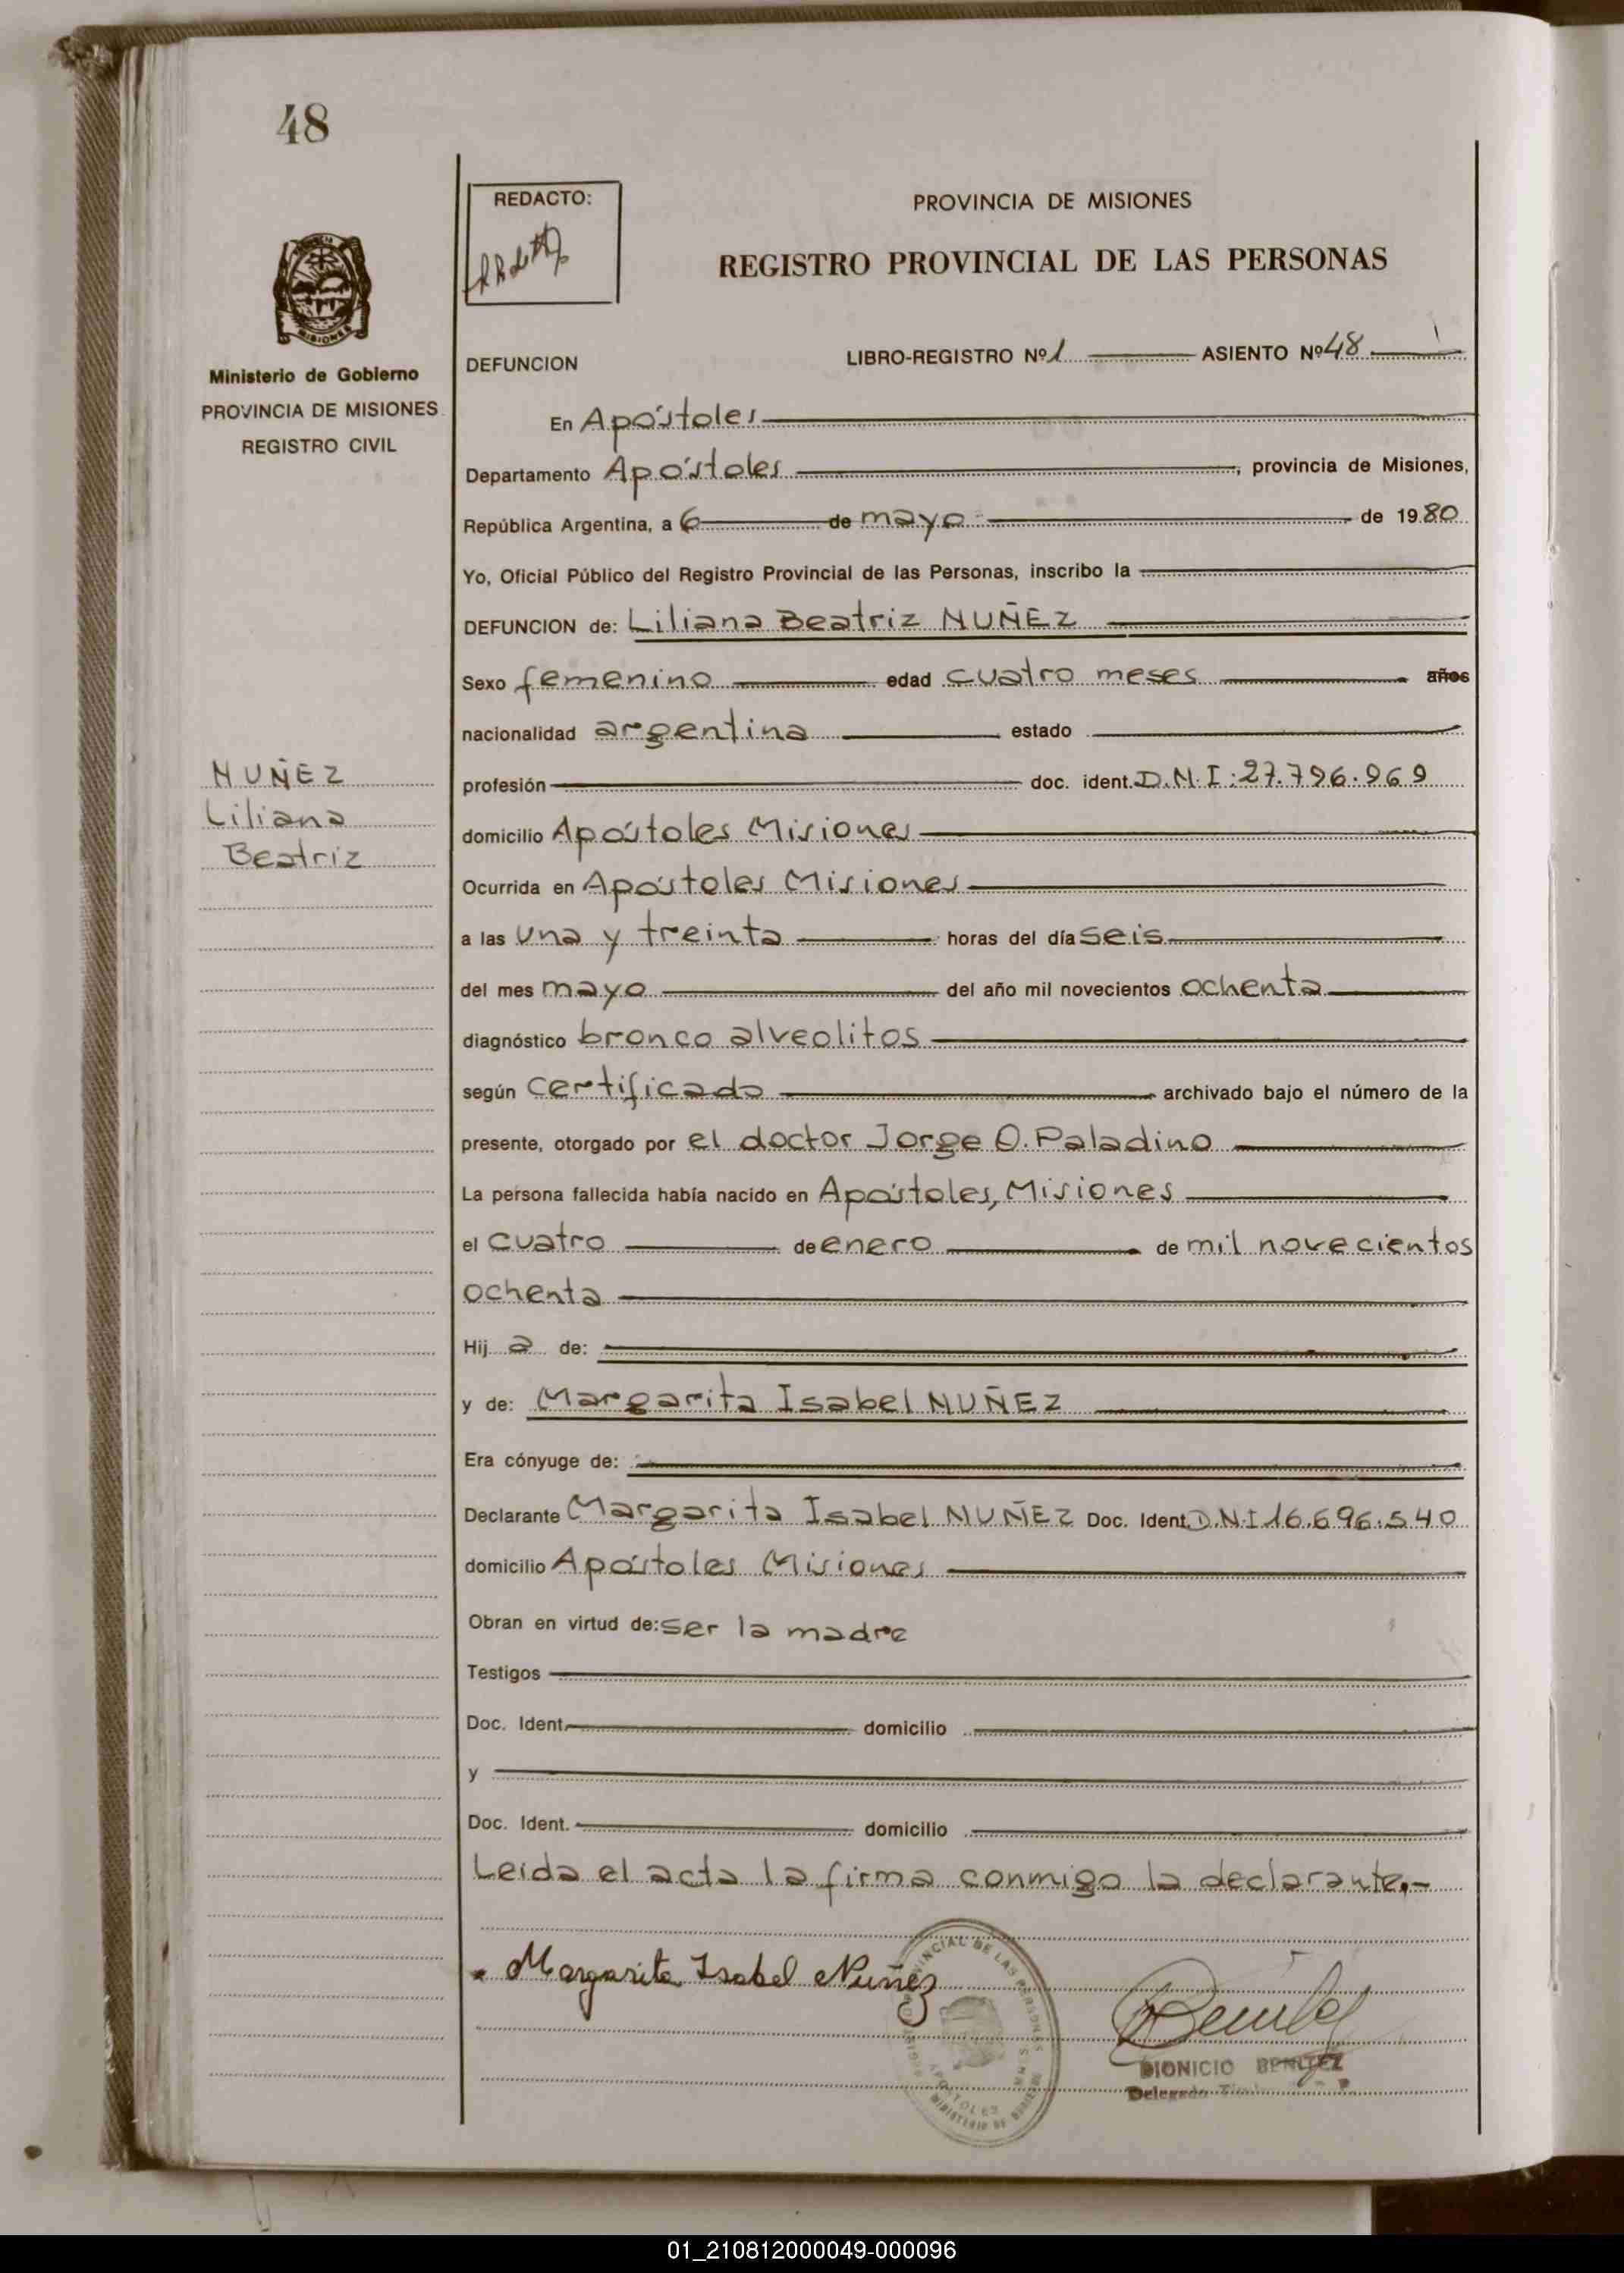 48
REDACTO:
PROVINCIA DE MISIONES
REGISTRO PROVINCIAL DE LAS PERSONAS
MISIONES
Ministerio de Gobierno
PROVINCIA DE MISIONES
REGISTRO CIVIL
DEFUNCION
LIBRO-REGISTRO Nº 1 ASIENTO Nº 48
En Apóstoles
Departamento Apóstoles, provincia de Misiones,
República Argentina, a 6 de mayo de 1980
Yo, Oficial Público del Registro Provincial de las Personas, inscribo la
DEFUNCION de: Liliana Beatriz NUÑEZ
Sexo femenino edad cuatro meses años
nacionalidad argentina estado
NUÑEZ
Liliana
Beatriz
profesión doc. ident. D.N.I: 27.796.969
domicilio Apóstoles Misiones
Ocurrida en Apóstoles Misiones
a las una y treinta horas del día seis
del mes mayo del año mil novecientos ochenta
diagnóstico bronco alveolitos
según certificado archivado bajo el número de la
presente, otorgado por el doctor Jorge O. Paladino
La persona fallecida había nacido en Apóstoles, Misiones
el cuatro de enero de mil novecientos
ochenta
Hij a de:
y de: Margarita Isabel NUÑEZ
Era cónyuge de:
Declarante Margarita Isabel NUÑEZ Doc. Ident D.N.I 16.696.540
domicilio Apóstoles Misiones
Obran en virtud de: ser la madre
Testigos
Doc. Ident. domicilio
y
Doc. Ident. domicilio
Leida el acta la firma conmigo la declarante.-
Margarita Isabel Nuñez
DIONICIO BENITEZ
Delegado
APOSTOLES
01_210812000049-000096